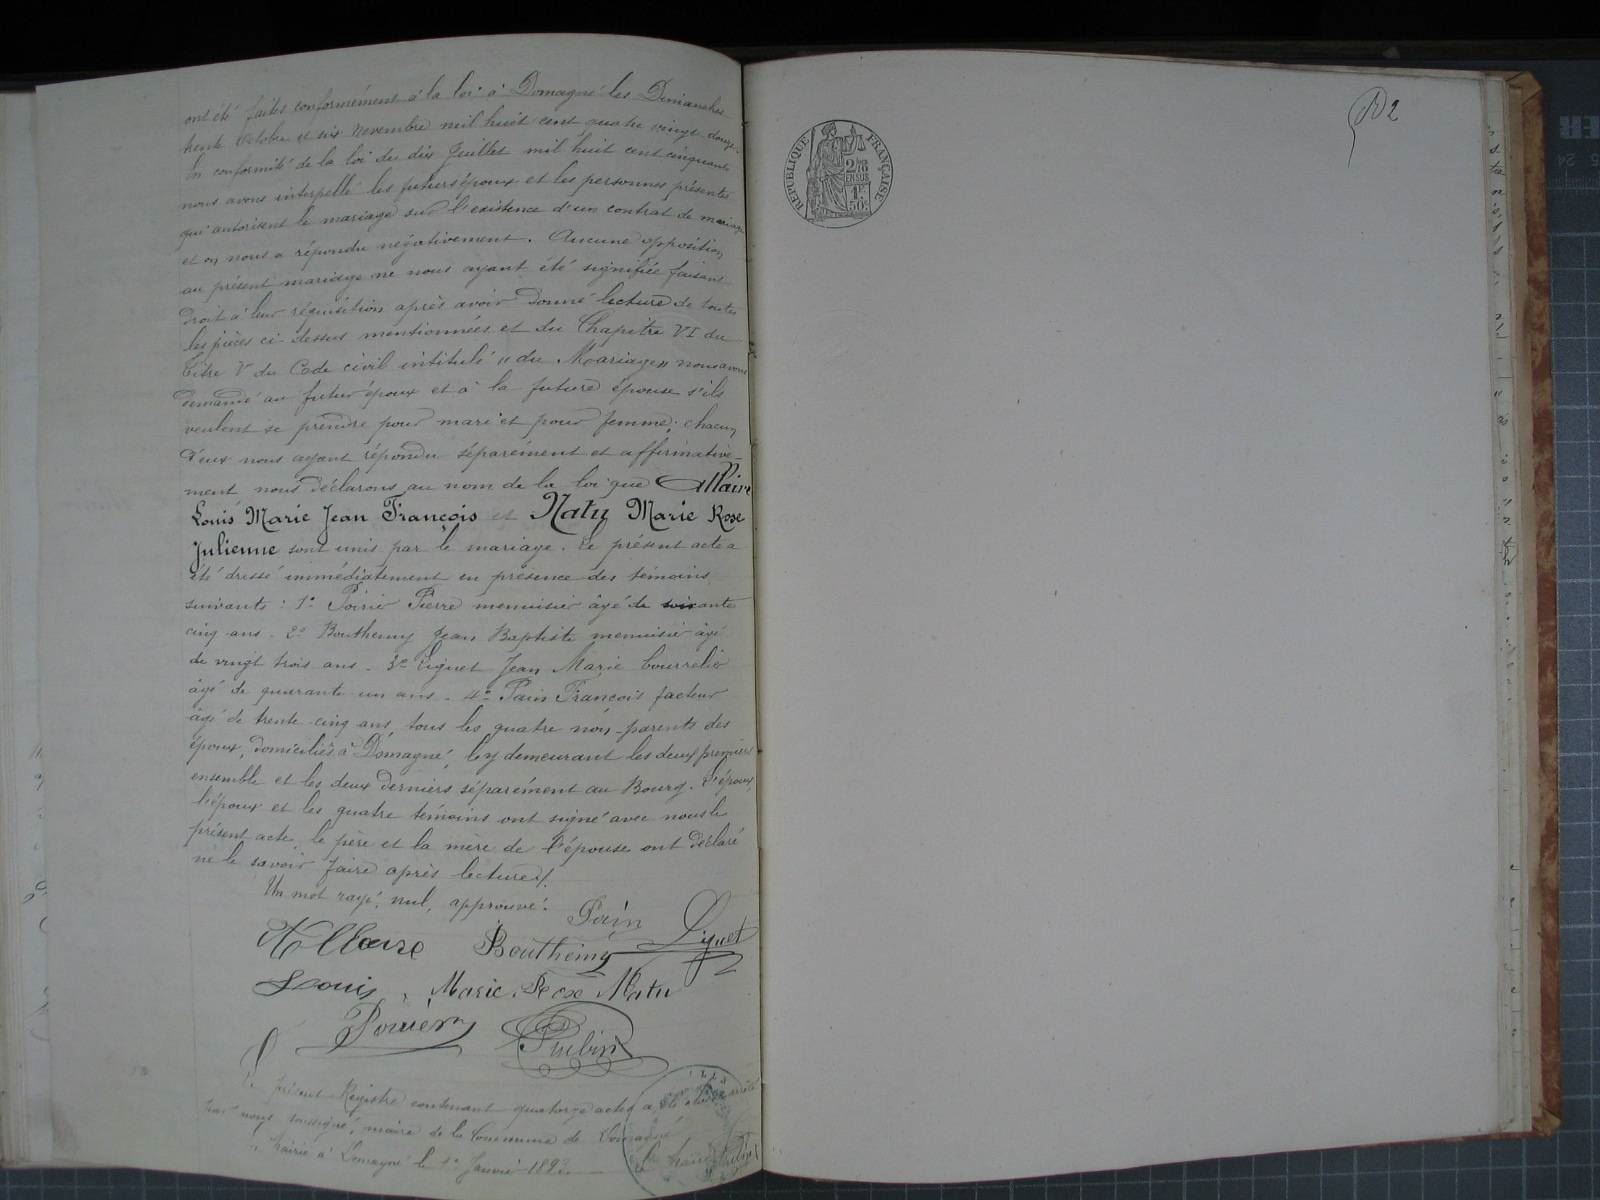 ont été faites conformément à la loi à Domagné les Dimanches
trente Octobre et six Novembre mil huit cent quatre vingt douze
En conformité de la loi du dix Juillet mil huit cent cinquante
nous avons interpellé les futurs époux et les personnes présentes
qui autorisent le mariage sur l'existence d'un contrat de mariage
et on nous a répondu négativement. Aucune opposition
au présent mariage ne nous ayant été signifiée faisant
droit à leur réquisition après avoir donné lecture de toutes
les pièces ci-dessus mentionnées et du Chapitre VI du
Titre V du Code civil intitulé "du Mariage" nous avons
demandé au futur époux et à la future épouse s'ils
veulent se prendre pour mari et pour femme; chacun
d'eux nous ayant répondu séparément et affirmative-
ment nous déclarons au nom de la loi que Allaire
Louis Marie Jean François et Natu Marie Rose
Julienne sont unis par le mariage. Le présent acte a
été dressé immédiatement en présence des témoins
suivants: 1° Poirier Pierre menuisier âgé de soixante
cinq ans. 2° Bouthemy Jean Baptiste menuisier âgé
de vingt trois ans. 3° Liguet Jean Marie bourrelier
âgé de quarante un ans. 4° Pain François facteur
âgé de trente cinq ans, tous les quatre non-parents des
époux, domiciliés à Domagné, les y demeurant les deux premiers
ensemble et les deux derniers séparément au Bourg. L'époux,
l'épouse et les quatre témoins ont signé avec nous le
présent acte, le père et la mère de l'épouse ont déclaré
ne le savoir faire après lecture./.
Un mot rayé, nul, approuvé.
Pain
Allaire Bouthemy Liguet
Louis Marie Rose Natu
Poirier
Le présent Registre contenant quatorze actes a été clos
par nous soussigné, maire de la Commune de Domagné
Mairie à Domagné le 1er Janvier 1893
Le Maire
RÉPUBLIQUE FRANÇAISE
2/10
EN SUS
1F
50c
2